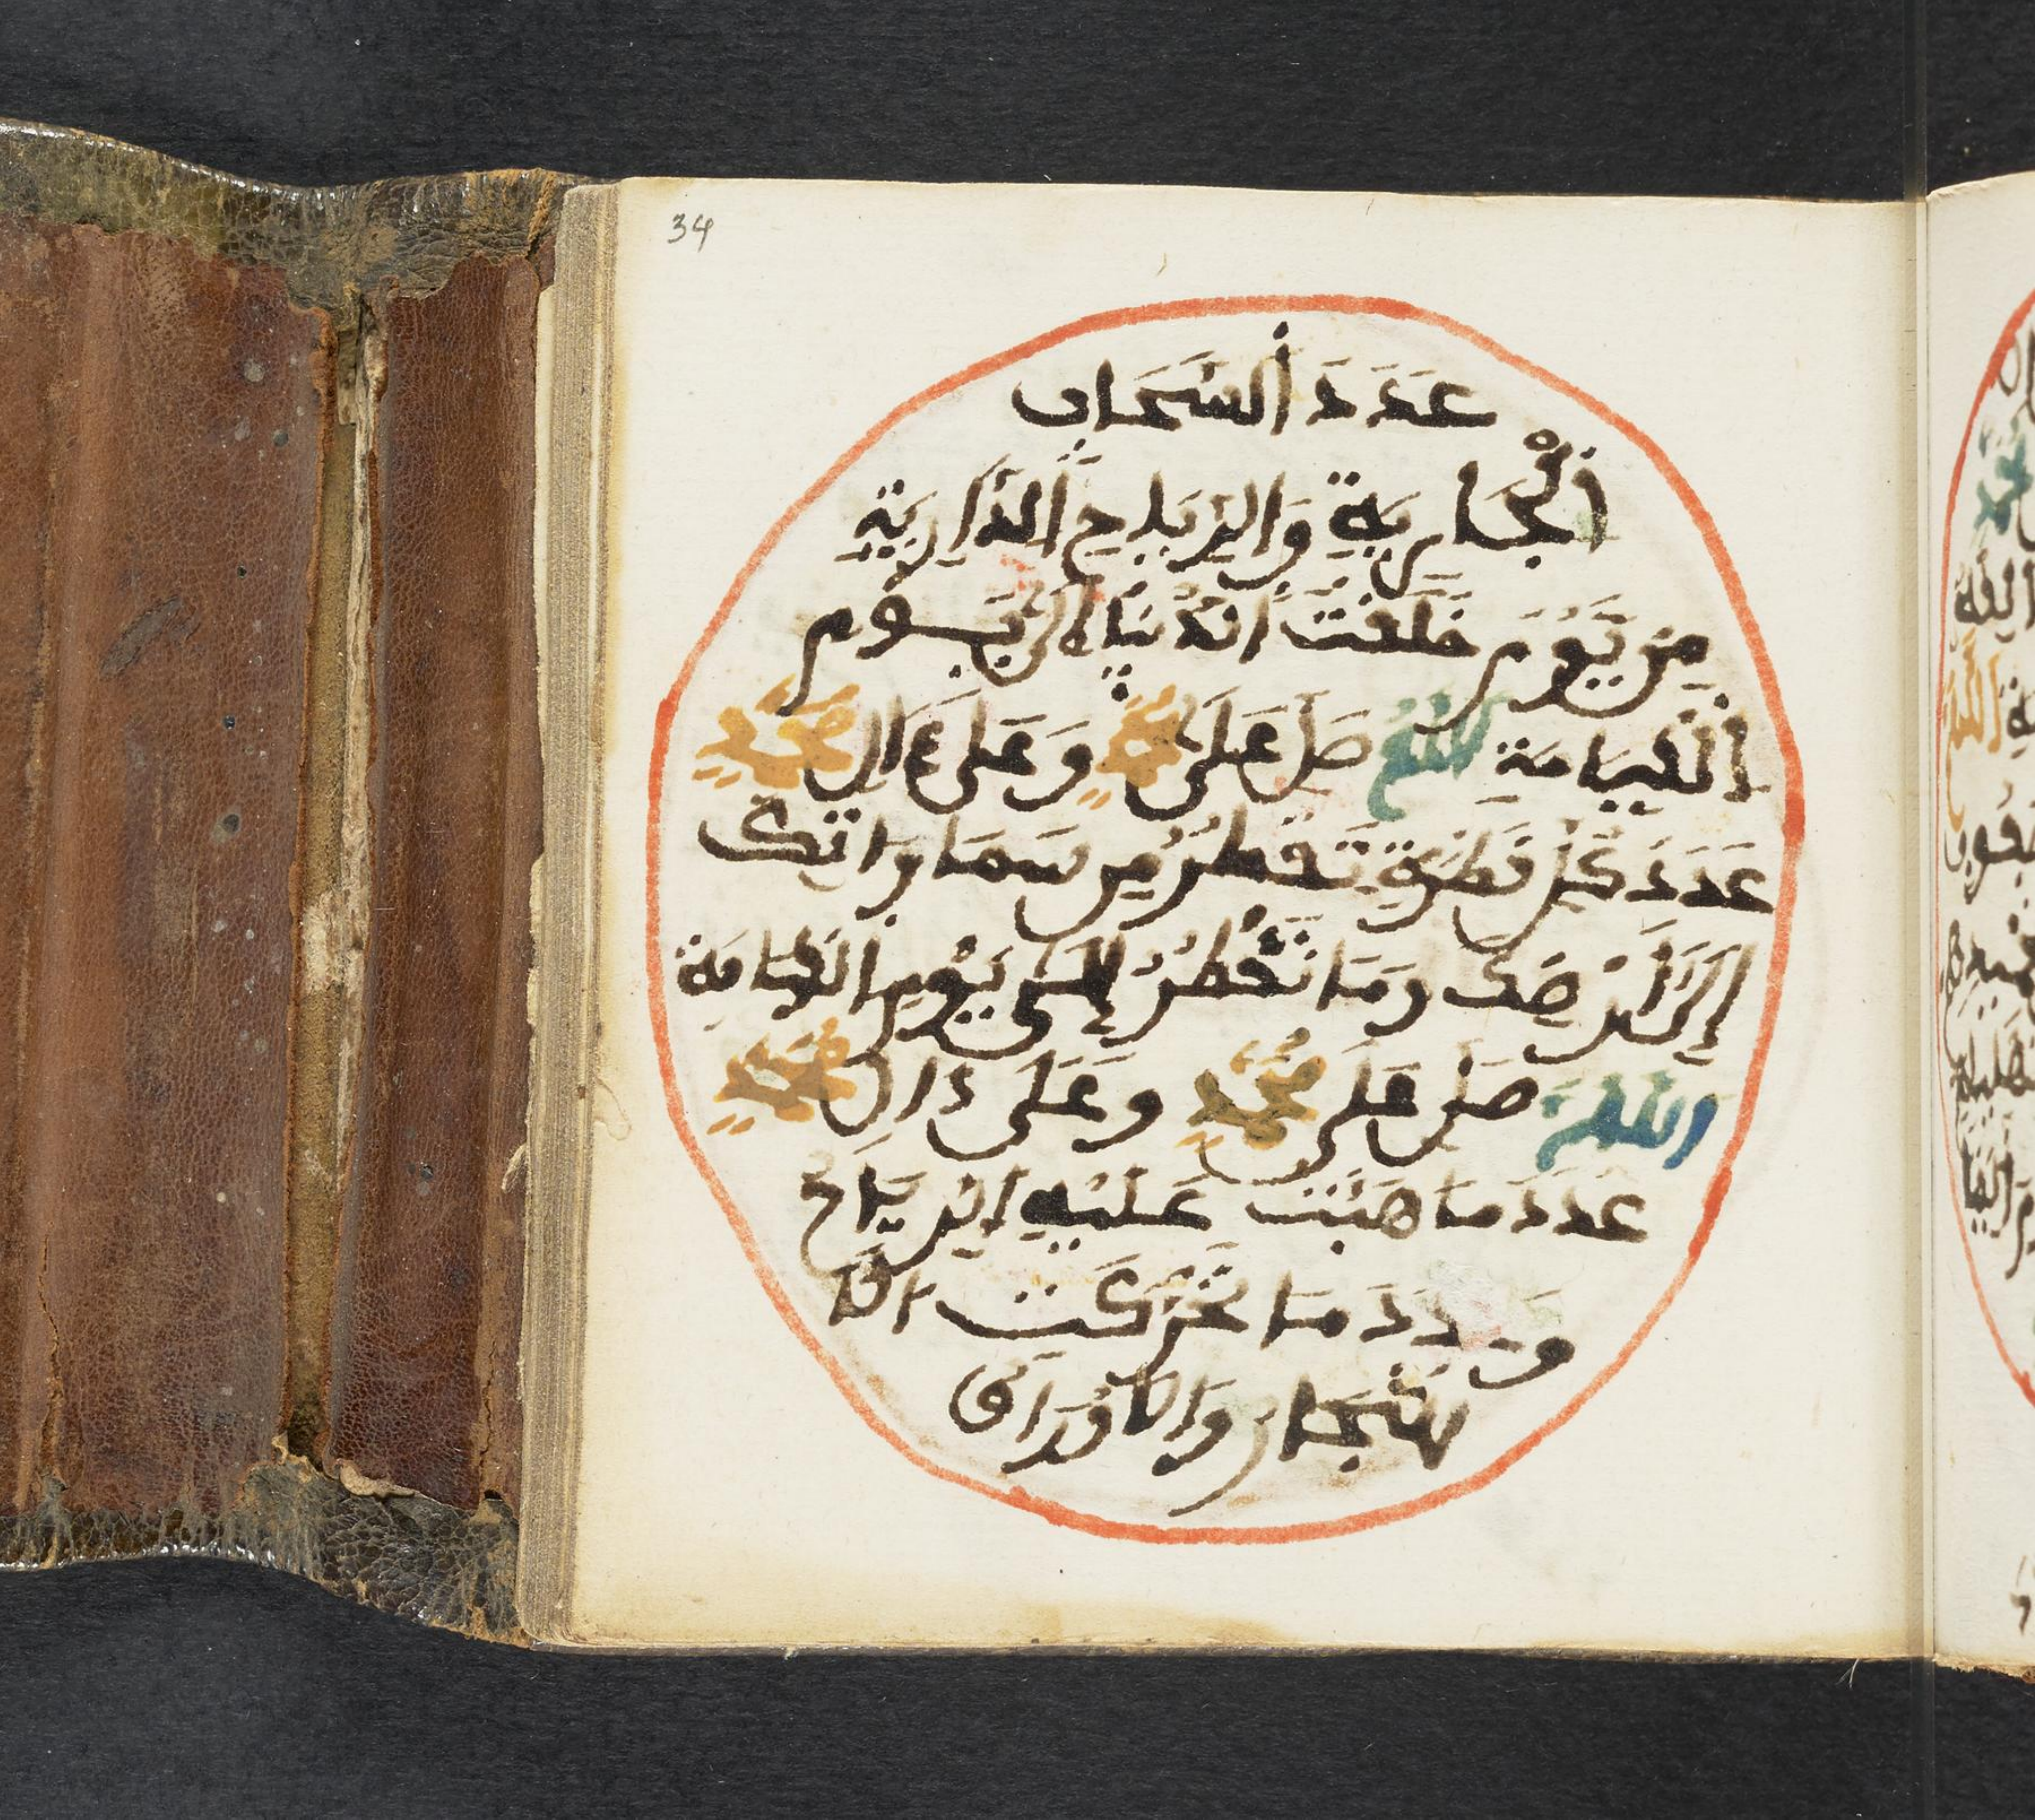 34
عَدَدَ السَّحَابِ
الْجَارِيَةِ وَالرِّيَاحِ الذَّارِيَةِ
مِنْ يَّوْمِ خَلَقْتَ الدُّنْيَا إِلَى يَوْمِ
الْقِيَامَةِ اللَّهُمَّ صَلِّ عَلَى مُحَمَّدٍ وَعَلَى ءَالِ مُحَمَّدٍ
عَدَدَ كُلِّ قَطْرَةٍ تَقْطُرُ مِنْ سَمَاوَاتِكَ
إِلَى أَرْضِكَ وَمَا تَقْطُرُ إِلَى يَوْمِ الْقِيَامَةِ
اللَّهُمَّ صَلِّ عَلَى مُحَمَّدٍ وَعَلَى ءَالِ مُحَمَّدٍ
عَدَدَ مَا هَبَّتْ عَلَيْهِ الرِّيَاحُ
وَعَدَدَ مَا تَحَرَّكَتْ الَا
شْجَارُ وَالَاوْرَاقُ